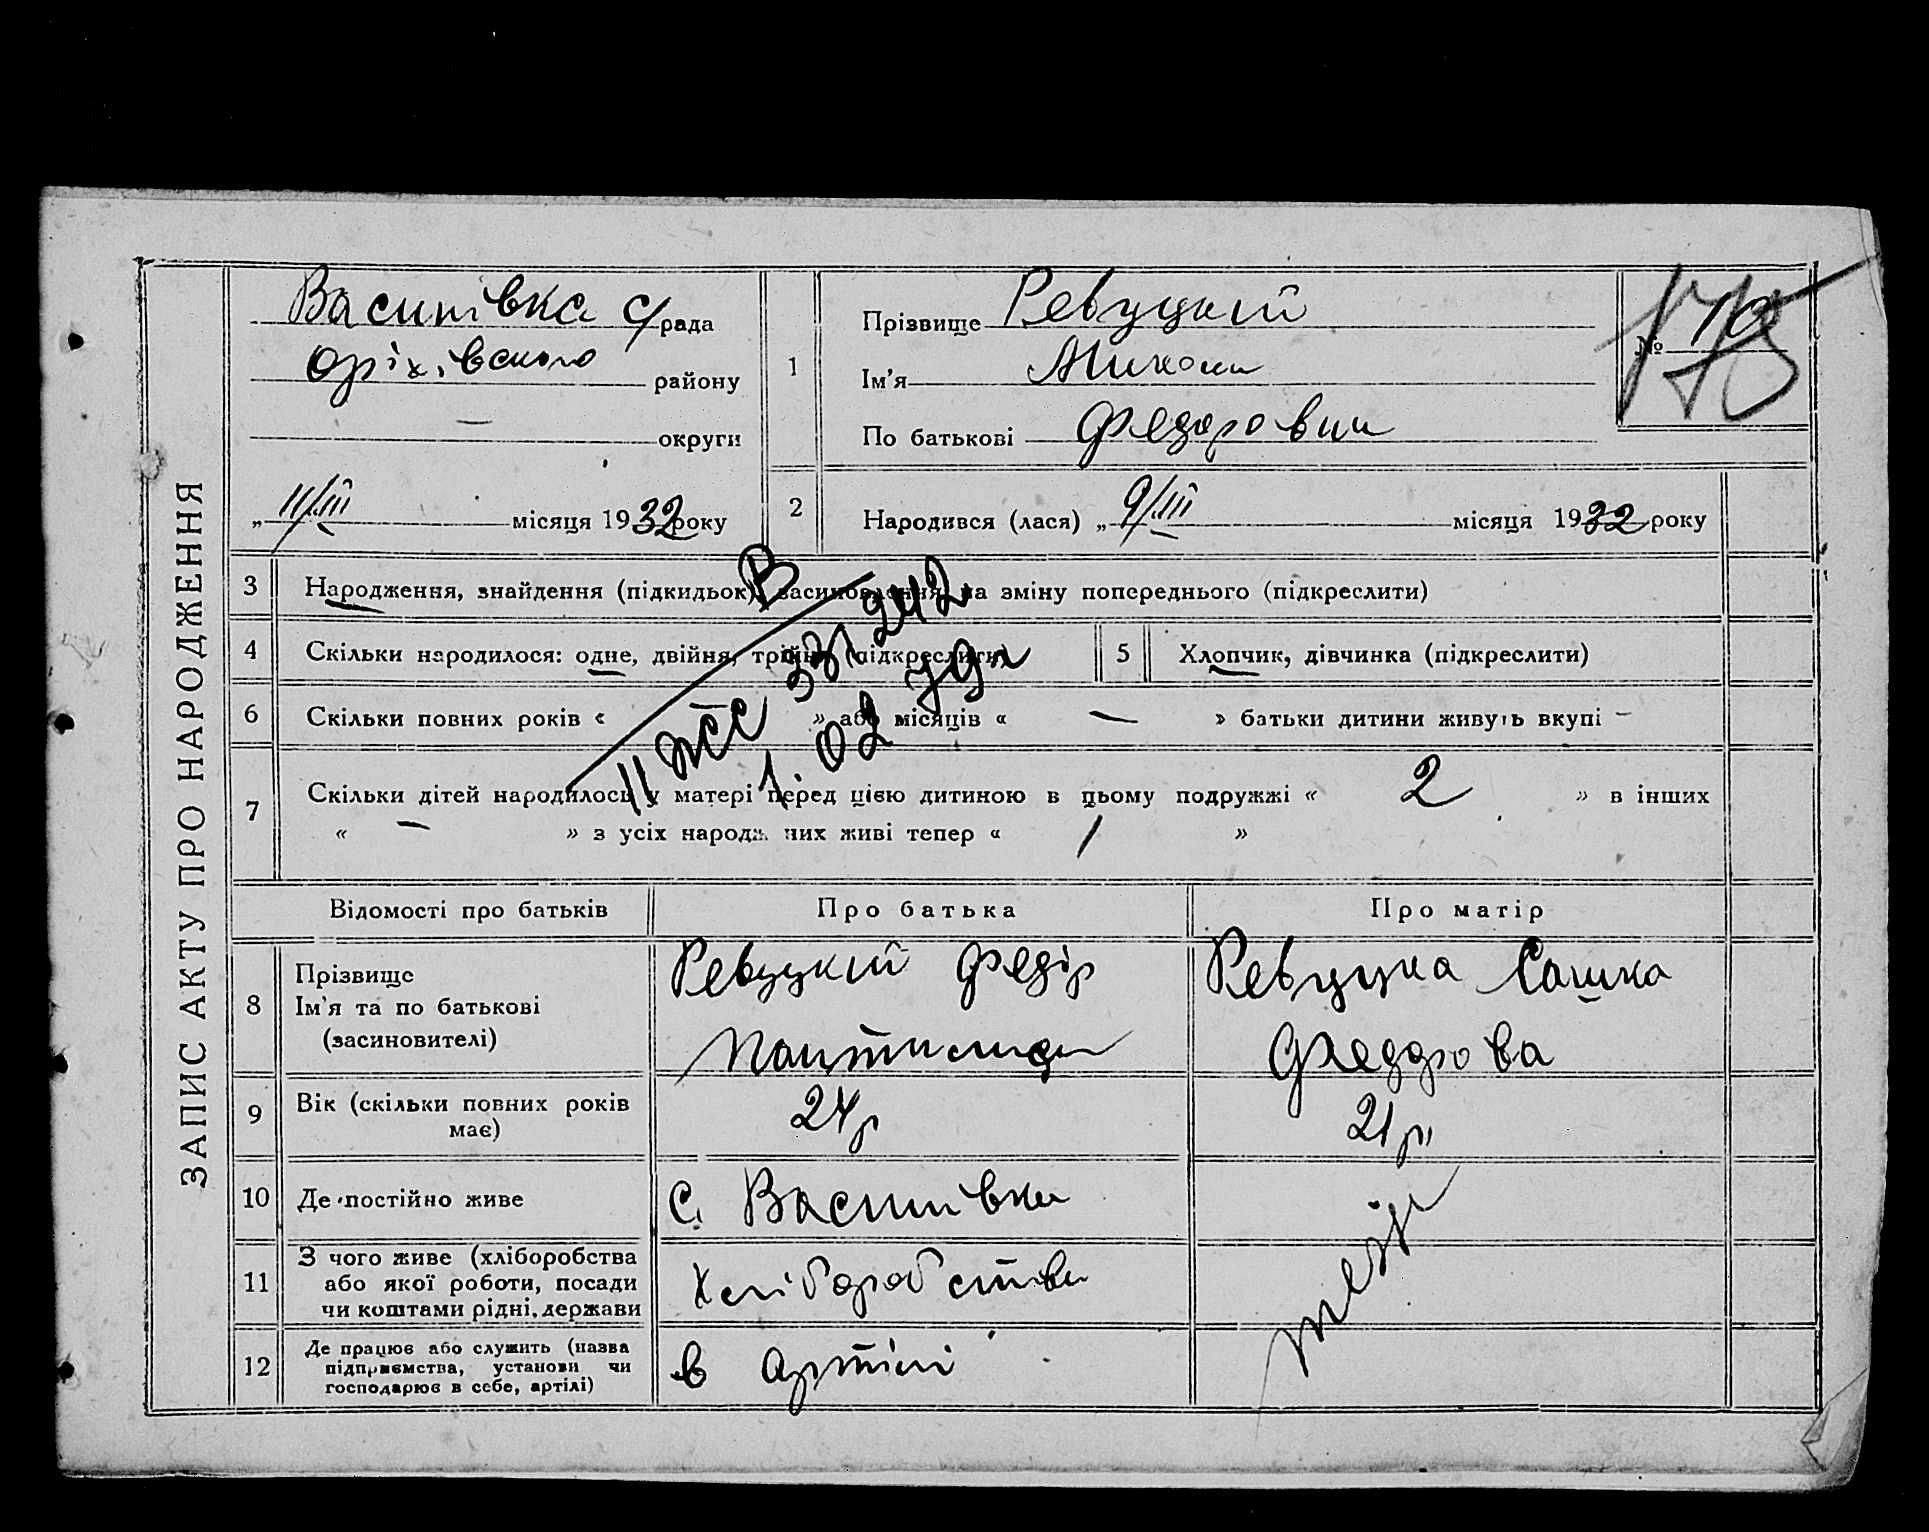 ЗАПИС АКТУ ПРО НАРОДЖЕННЯ
Василівка с/рада
Оріхівського району
— округи
„ 11/III місяця 1932 року
1
Прізвище Ревуцкий
Ім'я
По батькові Федорович
№
2 Народився (лася) „ 9/III місяця 1932 року
3 Народження, знайдення (підкидьок), засиновлення, на зміну попереднього (підкреслити)
4 Скільки народилося: одне, двійня, трійня (підкреслити)
5 Хлопчик, дівчинка (підкреслити)
6 Скільки повних років « » або місяців « — » батьки дитини живуть вкупі —
7 Скільки дітей народилось у матері перед цією дитиною в цьому подружжі « 2 » в інших
« — » з усіх народжених живі тепер « 1 »
В
II ЖС 331242
1.02 79г
Відомості про батьків Про батька Про матір
8 Прізвище
Ім'я та по батькові
(засиновителі)
Ревуцкий Федір
Ревуцка Сашка
Федорова
9 Вік (скільки повних років
має)
24р
21р
10 Де постійно живе
с. Василівка
11 З чого живе (хліборобства
або якої роботи, посади
чи коштами рідні, держави
Хліборобства
12 Де працює або служить (назва
підприємства, установи чи
господарює в себе, артілі)
в артілі